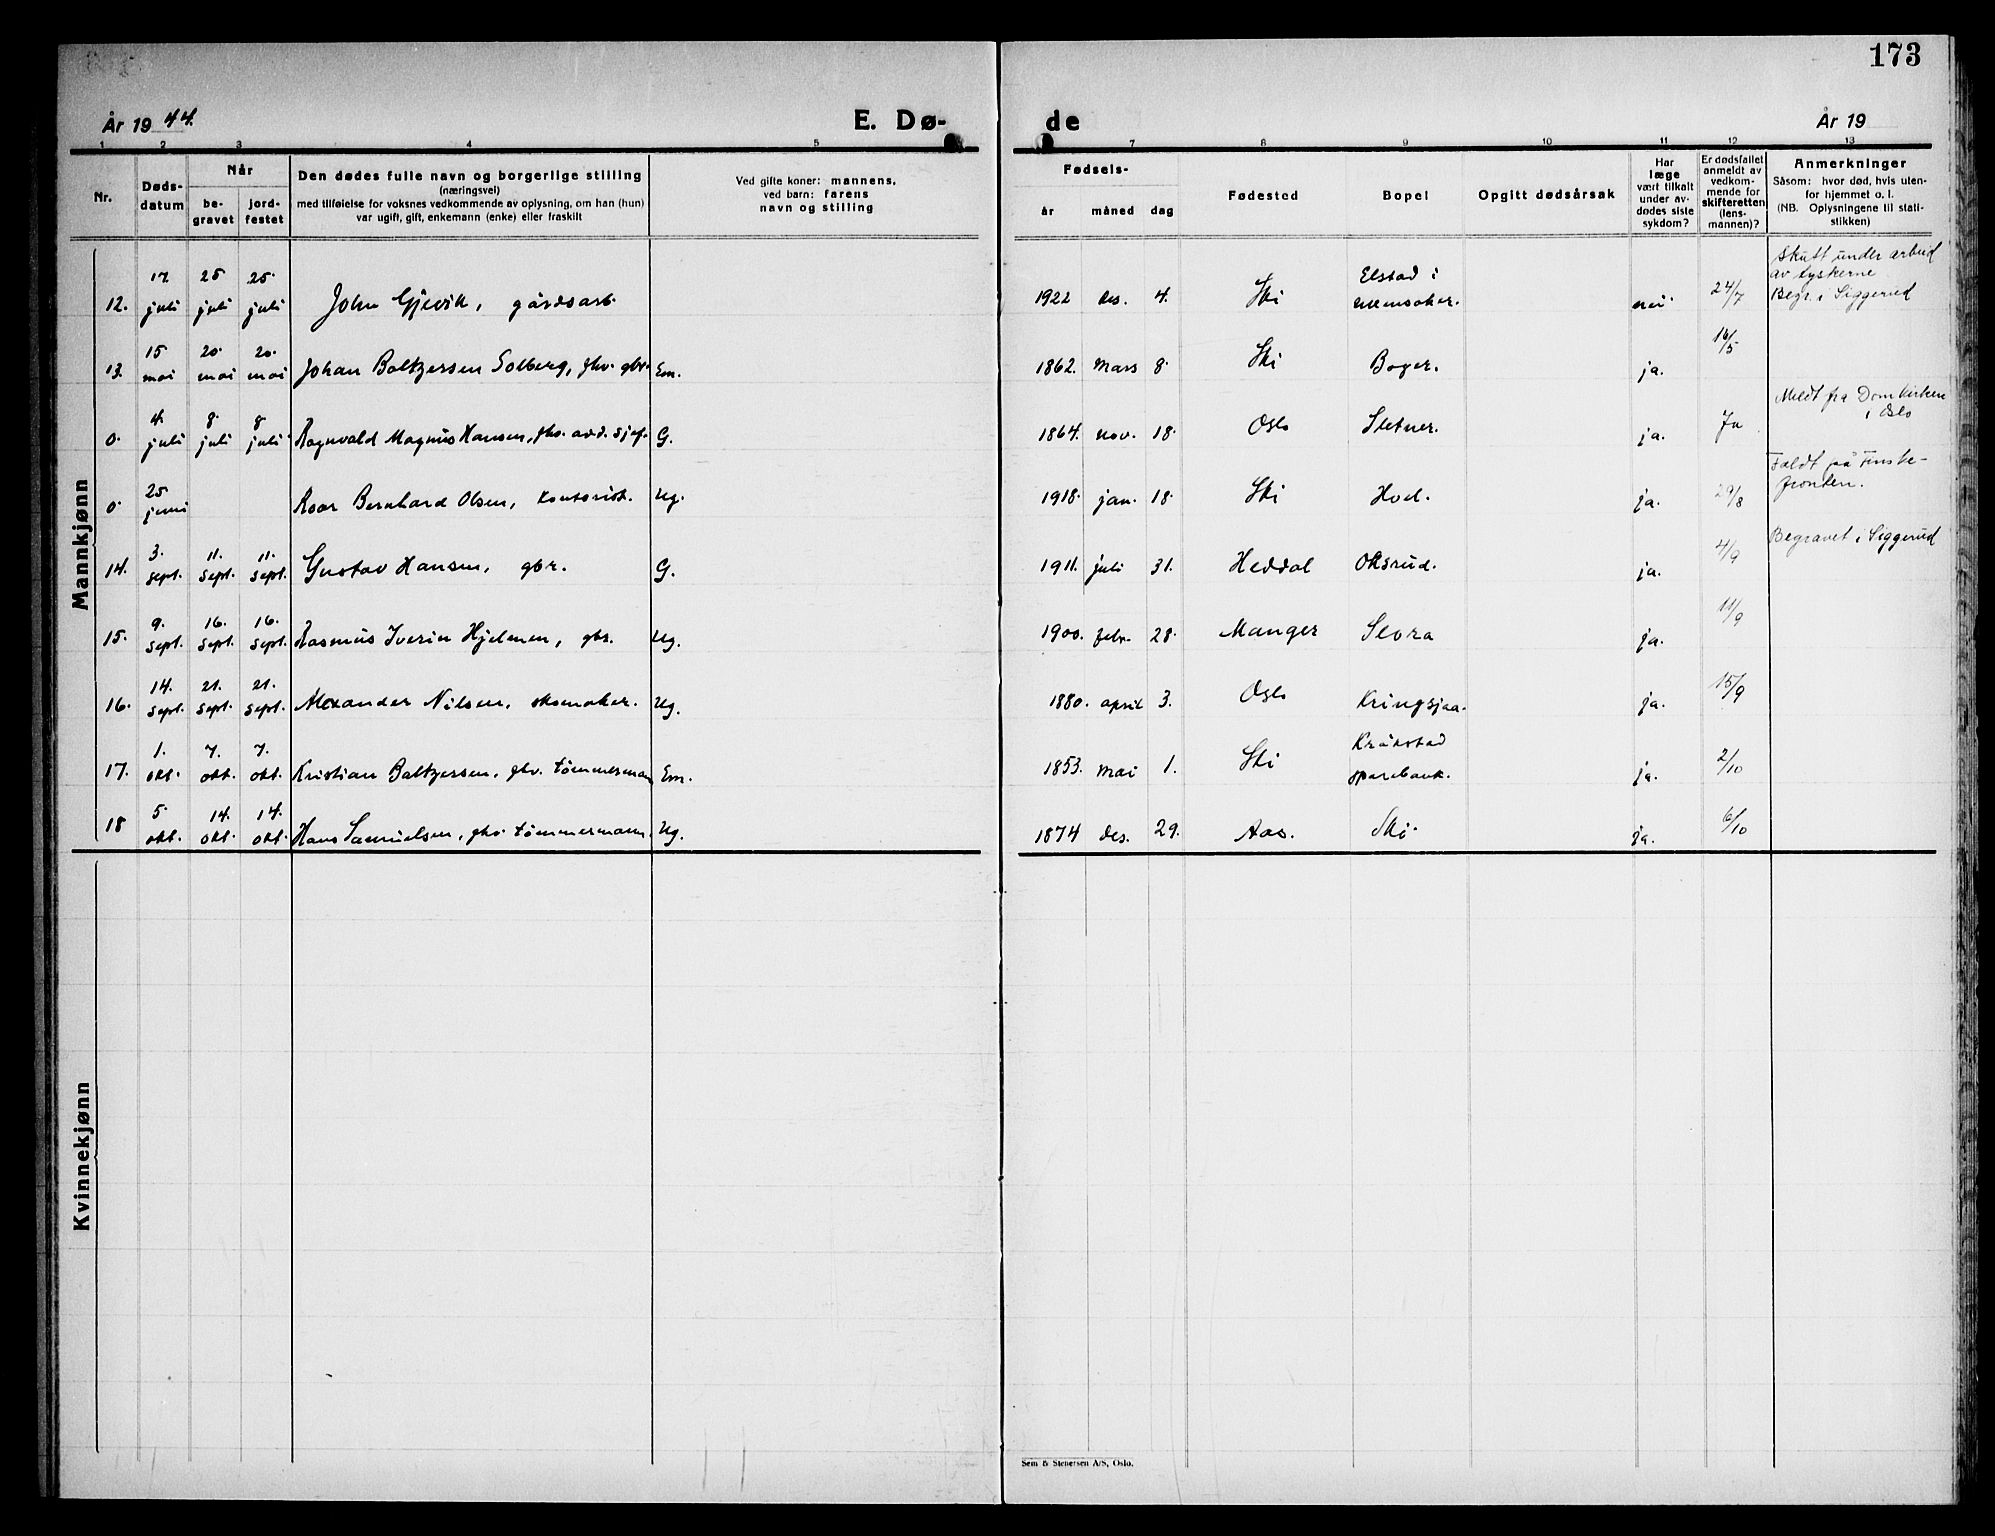 173
År 1944.
E. Dø-
de
År 19
1 2 3 4 5
7 8 9 10 11 12 13
Nr.
Døds-
datum
Når
be-
gravet
jord-
festet
Den dødes fulle navn og borgerlige stilling
(næringsvei)
med tilføielse for voksnes vedkommende av oplysning, om han (hun)
var ugift, gift, enkemann (enke) eller fraskilt
Ved gifte koner: mannens,
ved barn: farens
navn og stilling
Fødsels-
år måned dag
Fødested
Bopel
Opgitt dødsårsak
Har
læge
vært tilkalt
under av-
dødes siste
sykdom?
Er dødsfallet
anmeldt av
vedkom-
mende for
skifteretten
(lens-
mannen)?
Anmerkninger
Såsom: hvor død, hvis uten-
for hjemmet o. l.
(NB. Oplysningene til stati-
stikken)
Mannkjønn
12. 17 juli 25 juli 25 juli John Gjevik, gårdsarb. 1922 des. 4. Ski Elstad i nei 24/7 Skutt under arbeid
av tyskerne
Begr. i Siggerud
13. 15 mai 20 mai 20 mai Johan Baltzersen Solberg, fhv. gbr. Em. 1862. mars 8. Ski Boger. ja. 16/5
0. 4. juli 8 juli 8 juli Ragnvald Magnus Hansen, fhv. avd. sjef. G. 1864. nov. 18. Oslo Sletner. ja. Ja Meldt fra Domkirken
i Oslo
0 25 juni Roar Bernhard Olsen, kontorist. Ug. 1918. jan. 18. Ski Hvel. ja. 29/8 Faldt på Finske-
fronten.
14. 3. sept. 11. sept. 11. sept. Gustav Hansen, gbr. G. 1911. juli 31. Heddal Oksrud. ja. 4/9 Begravet i Siggerud
15. 9. sept. 16. sept. 16. sept. Rasmus Iverin Hjelmen, gbr. Ug. 1900. febr. 28. Manger Slora ja. 11/9
16. 14. sept. 21. sept. 21. sept. Alexander Nilsen, skomaker. Ug. 1880. april 3. Oslo Kringsjaa. ja. 15/9
17. 1. okt. 7. okt. 7. okt. Kristian Baltzersen, fhv. tømmermann Em. 1853. mai 1. Ski Kråkstad
sparebank. ja. 2/10
18 5 okt. 14. okt. 14. okt. Hans Samuelsen, fhv tømmermann. Ug. 1874 des. 29. Aas. Ski. ja. 6/10
Kvinnekjønn
Sem & Stenersen A/S, Oslo.